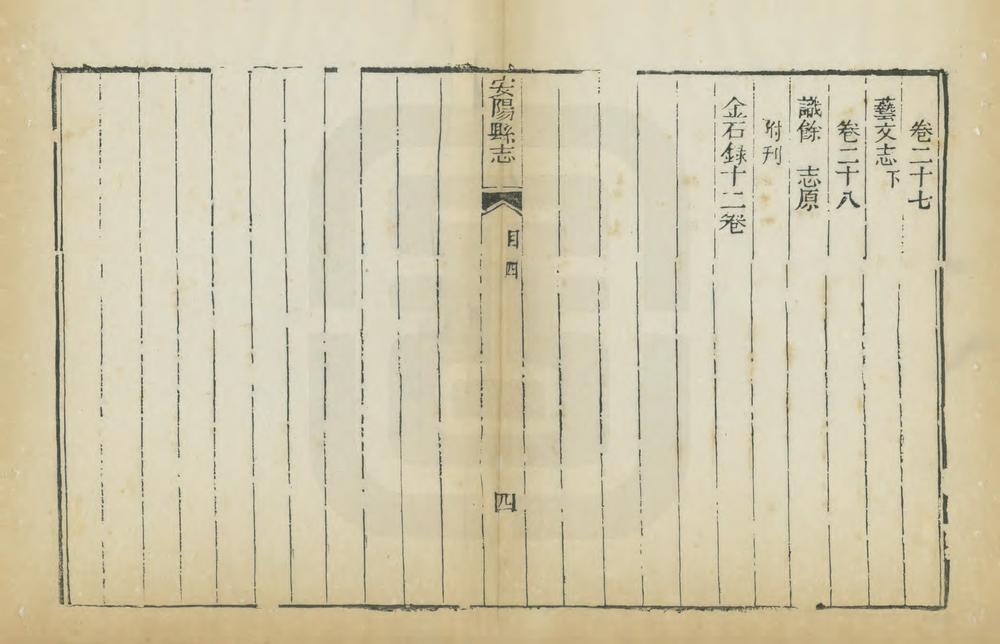 卷二十七
藝文志下
卷二十八
識餘　志原
附刊
金石録十二卷
安陽縣志
目四
四